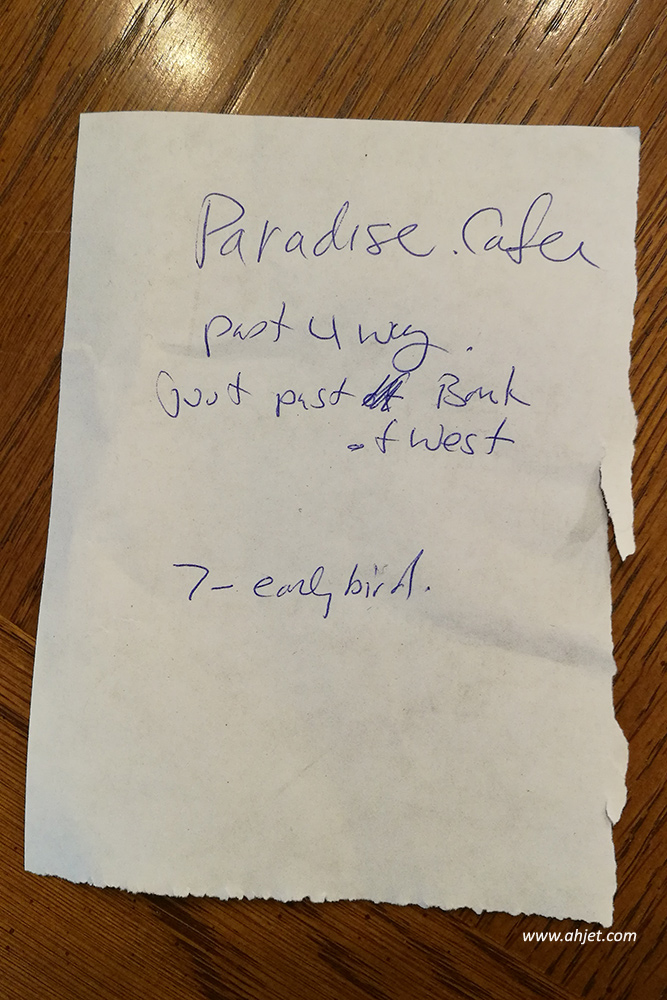 Paradise. Cafe
past 4 way.
past Bank
of West
7- early bird.
www.ahjet.com